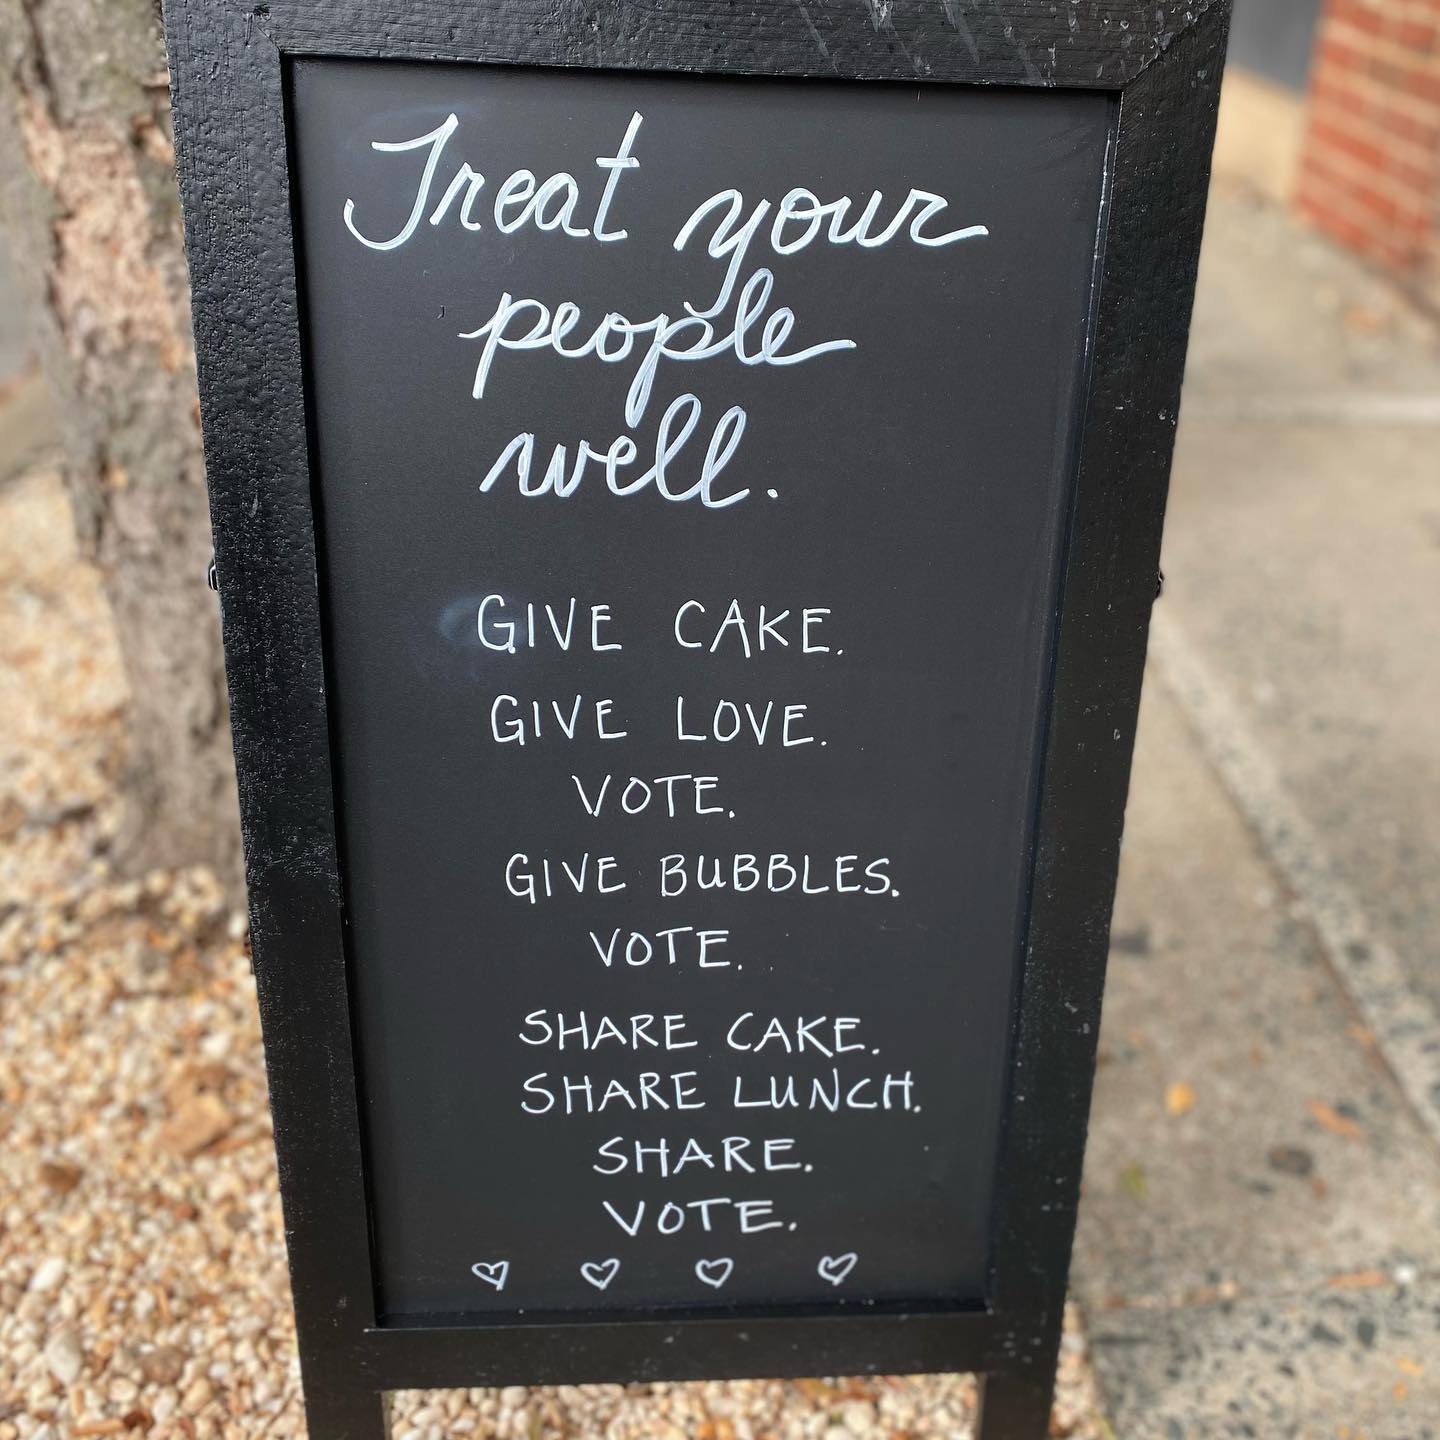 Treat your
people
well.
GIVE CAKE.
GIVE LOVE.
VOTE.
GIVE BUBBLES.
VOTE.
SHARE CAKE.
SHARE LUNCH.
SHARE.
VOTE.